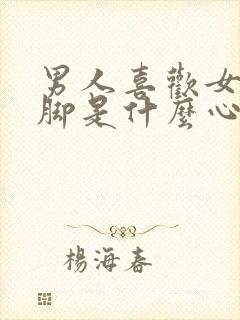 男人喜歡女
脚是什麼心
楊海春